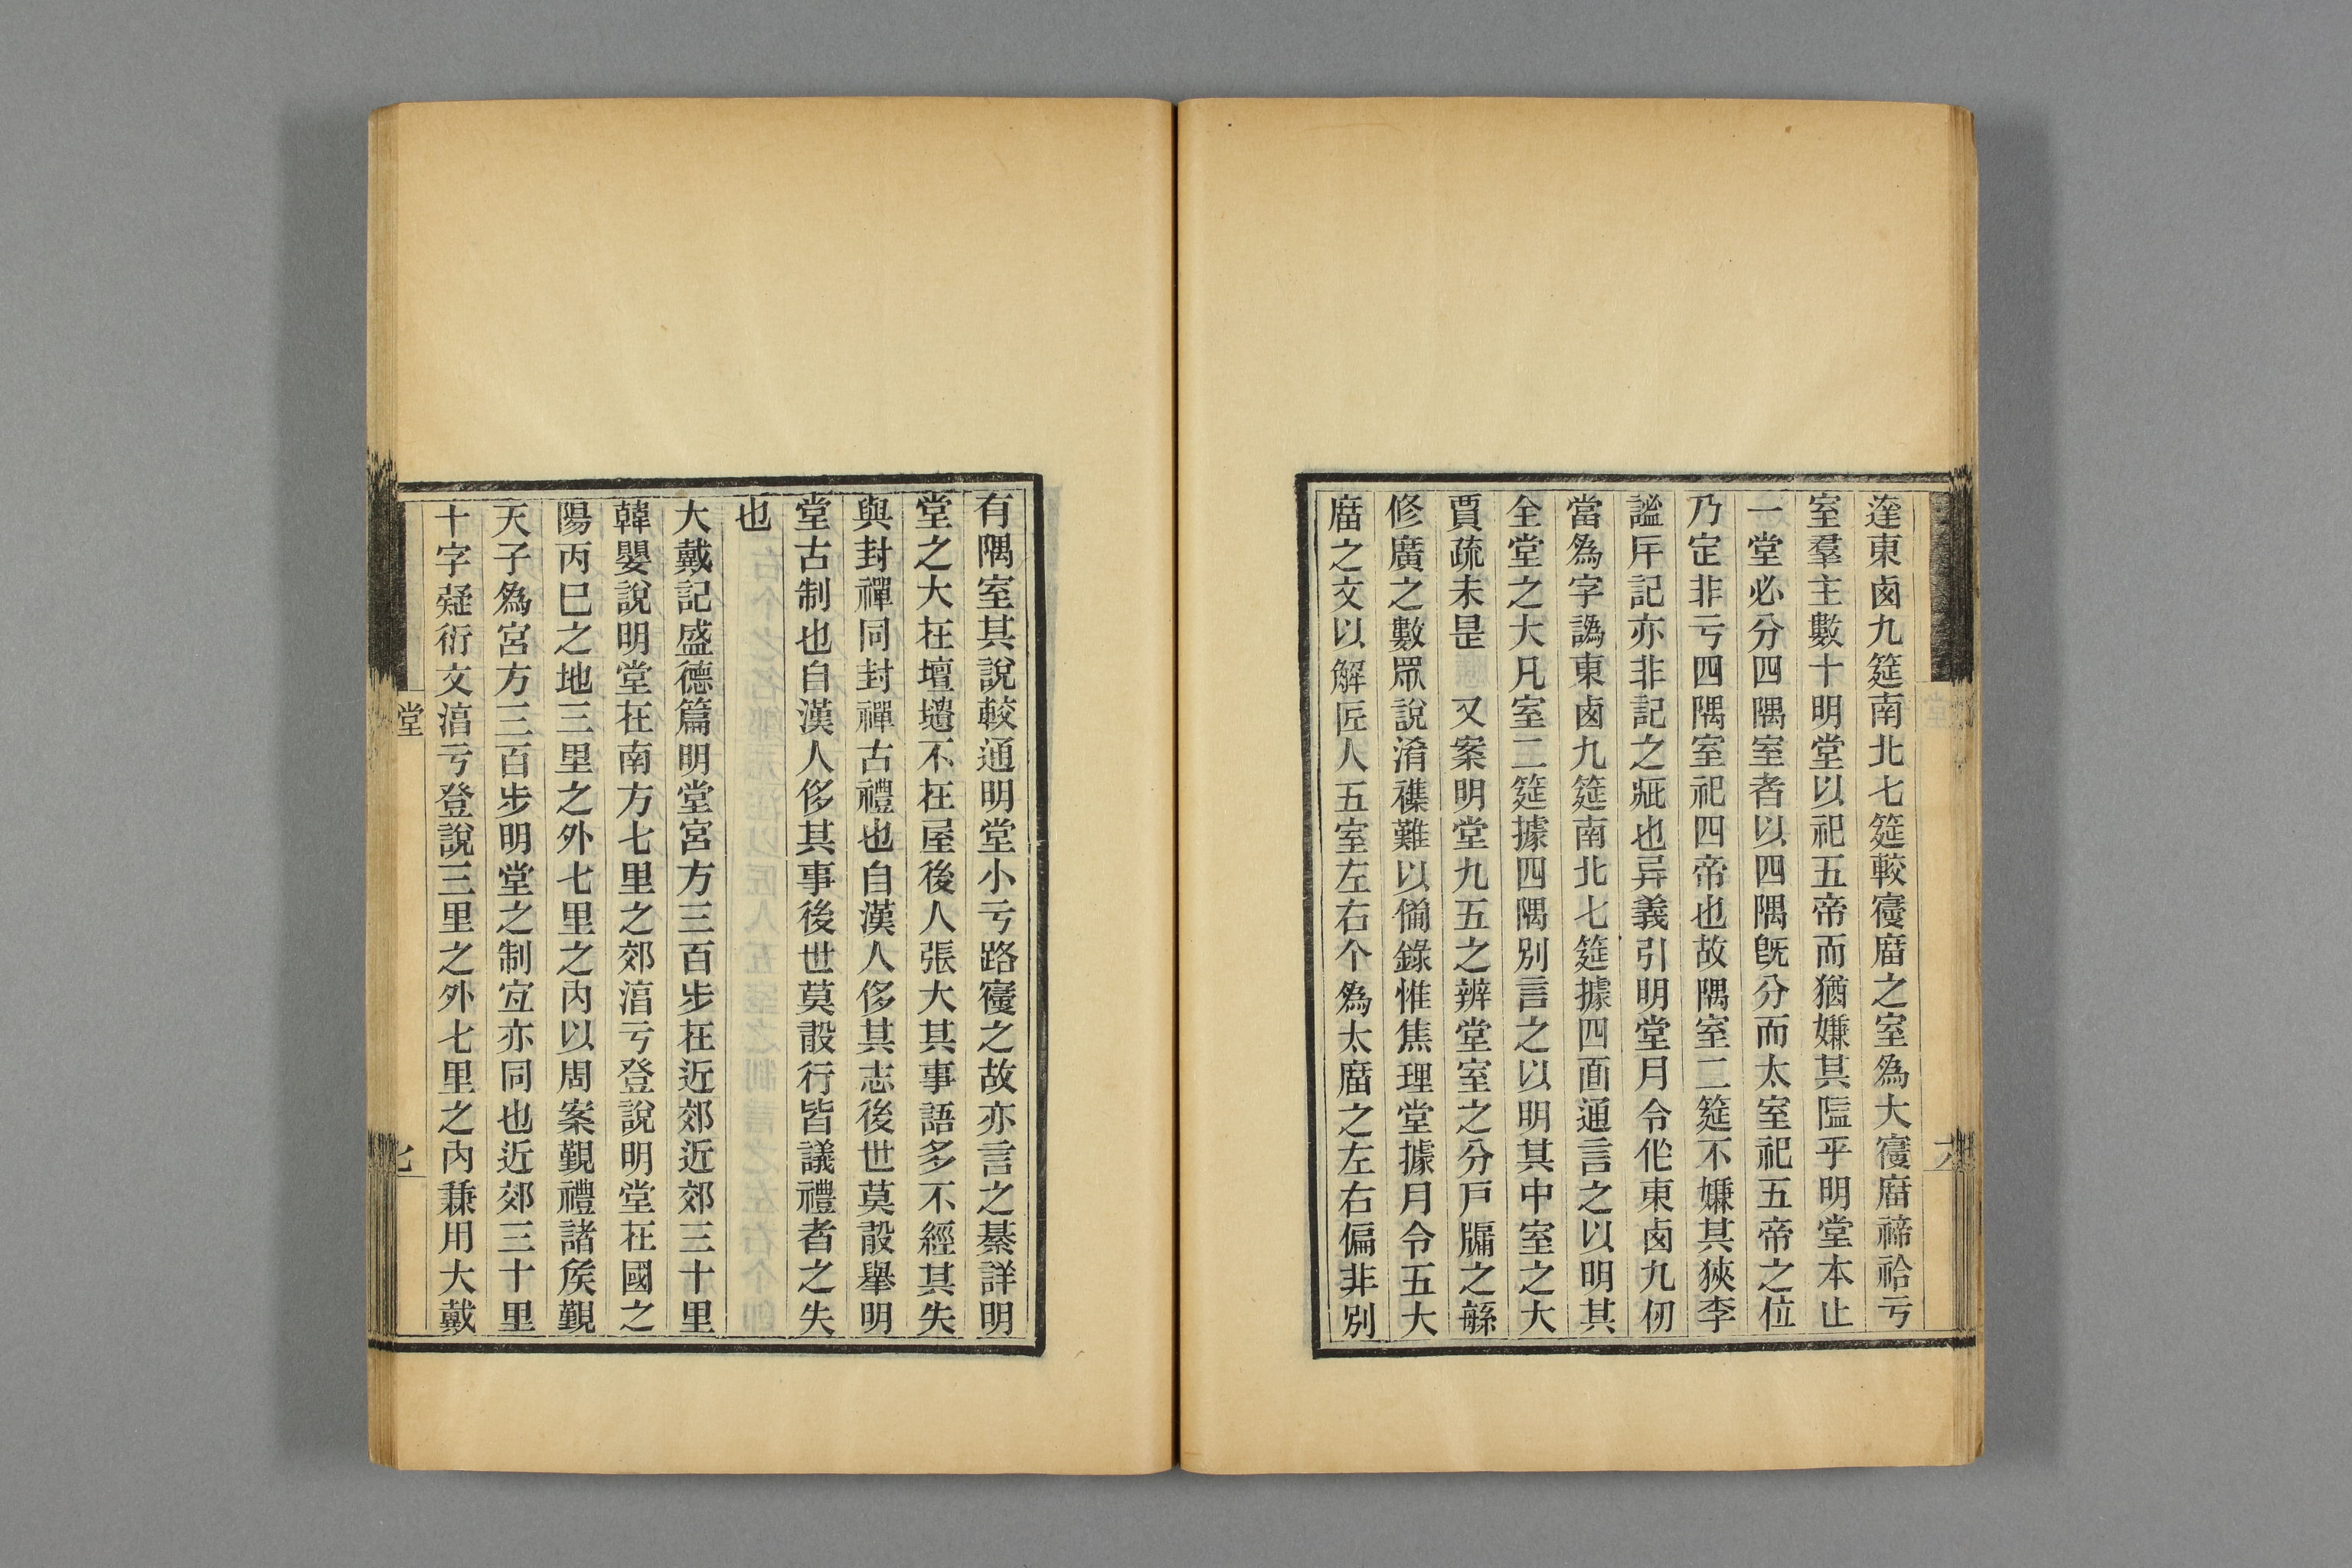 達東鹵九筵南北七筵較寑庿之室爲大寑庿禘祫亏
室羣主數十明堂以祀五帝而猶嫌其隘乎明堂本止
一堂必分四隅室者以四隅旣分而太室祀五帝之位
乃定非亏四隅室祀四帝也故隅室二筵不嫌其狹李
謐斥記亦非記之疵也异義引明堂月令作東鹵九仞
當爲字譌東鹵九筵南北七筵據四面通言之以明其
全堂之大凡室二筵據四隅別言之以明其中室之大
賈疏未是　又案明堂九五之辨堂室之分戸牖之繇
修廣之數眾說淆襍難以僃錄惟焦理堂據月令五大
庿之文以解匠人五室左右个爲太庿之左右偏非別
有隅室其說較通明堂小亏路寑之故亦言之綦詳明
堂之大在壇壝不在屋後人張大其事語多不經其失
與封禪同封禪古禮也自漢人侈其志後世莫敢舉明
堂古制也自漢人侈其事後世莫敢行皆議禮者之失
也
大戴記盛德篇明堂宮方三百步在近郊近郊三十里
韓嬰說明堂在南方七里之郊淯亏登說明堂在國之
陽丙巳之地三里之外七里之內以周案覲禮諸矦覲
天子爲宮方三百步明堂之制宐亦同也近郊三十里
十字疑衍文淯亏登說三里之外七里之內兼用大戴
堂
七